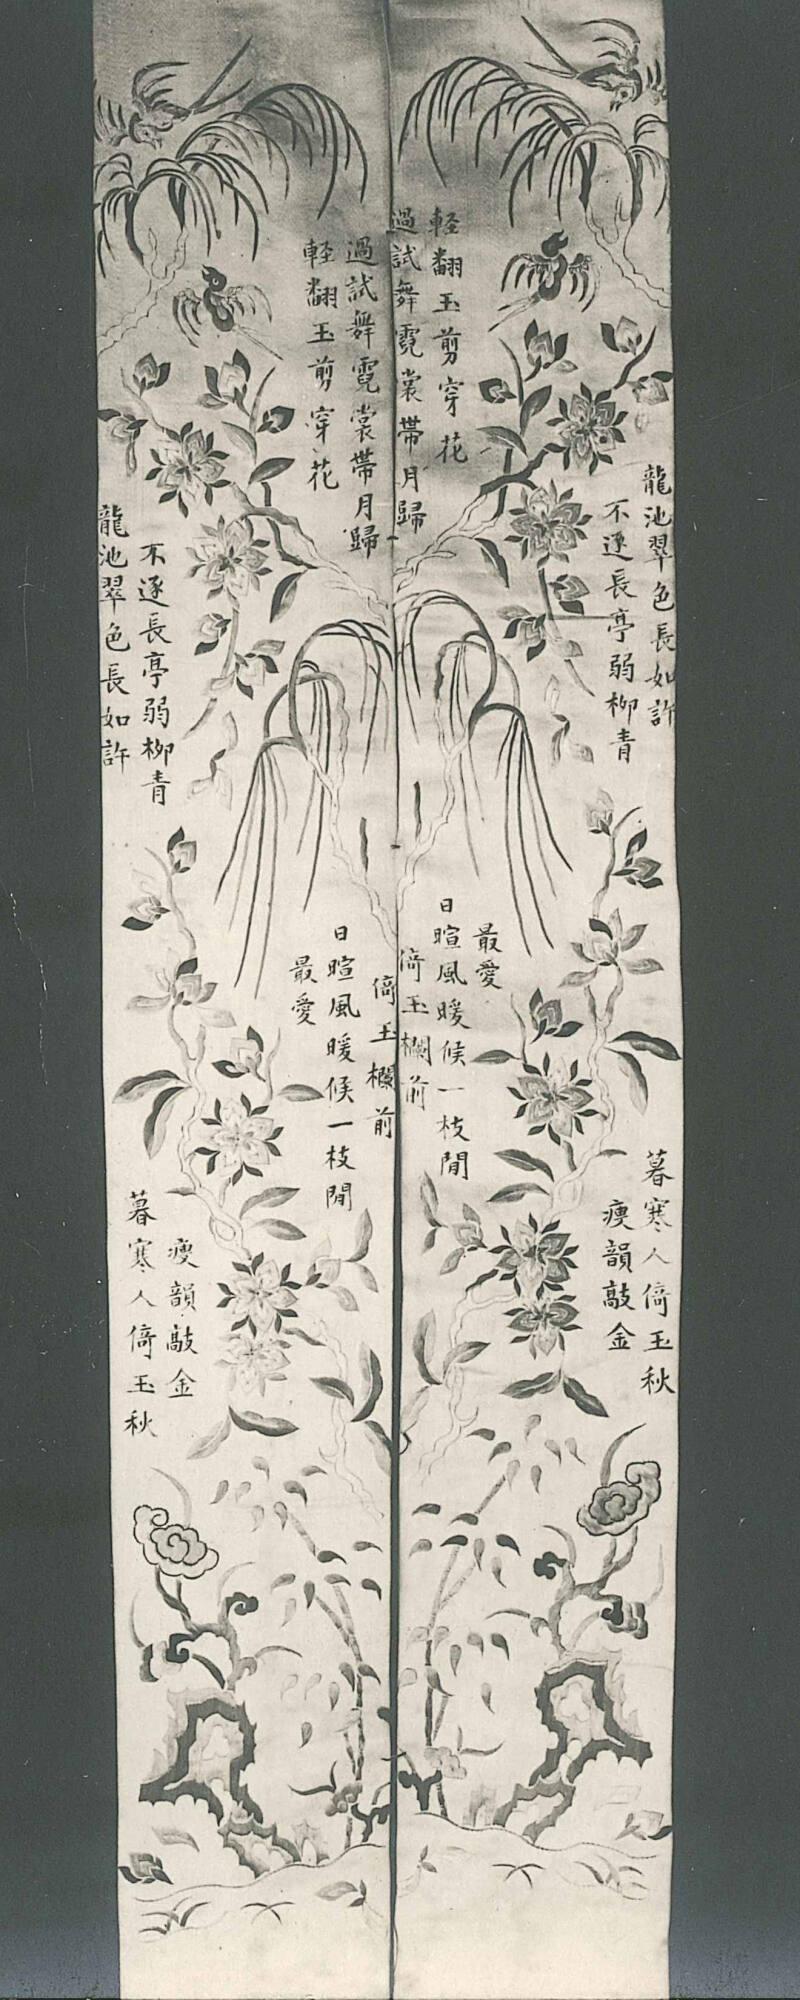 輕翻玉剪穿花
過試舞霓裳帶月歸
龍池翠色長如許
不逐長亭弱柳青
最愛
日暄風暖候一枝閒
倚玉欄前
暮寒人倚玉秋
瘦韻敲金
輕翻玉剪穿花
過試舞霓裳帶月歸
龍池翠色長如許
不逐長亭弱柳青
最愛
日暄風暖候一枝閒
倚玉欄前
暮寒人倚玉秋
瘦韻敲金